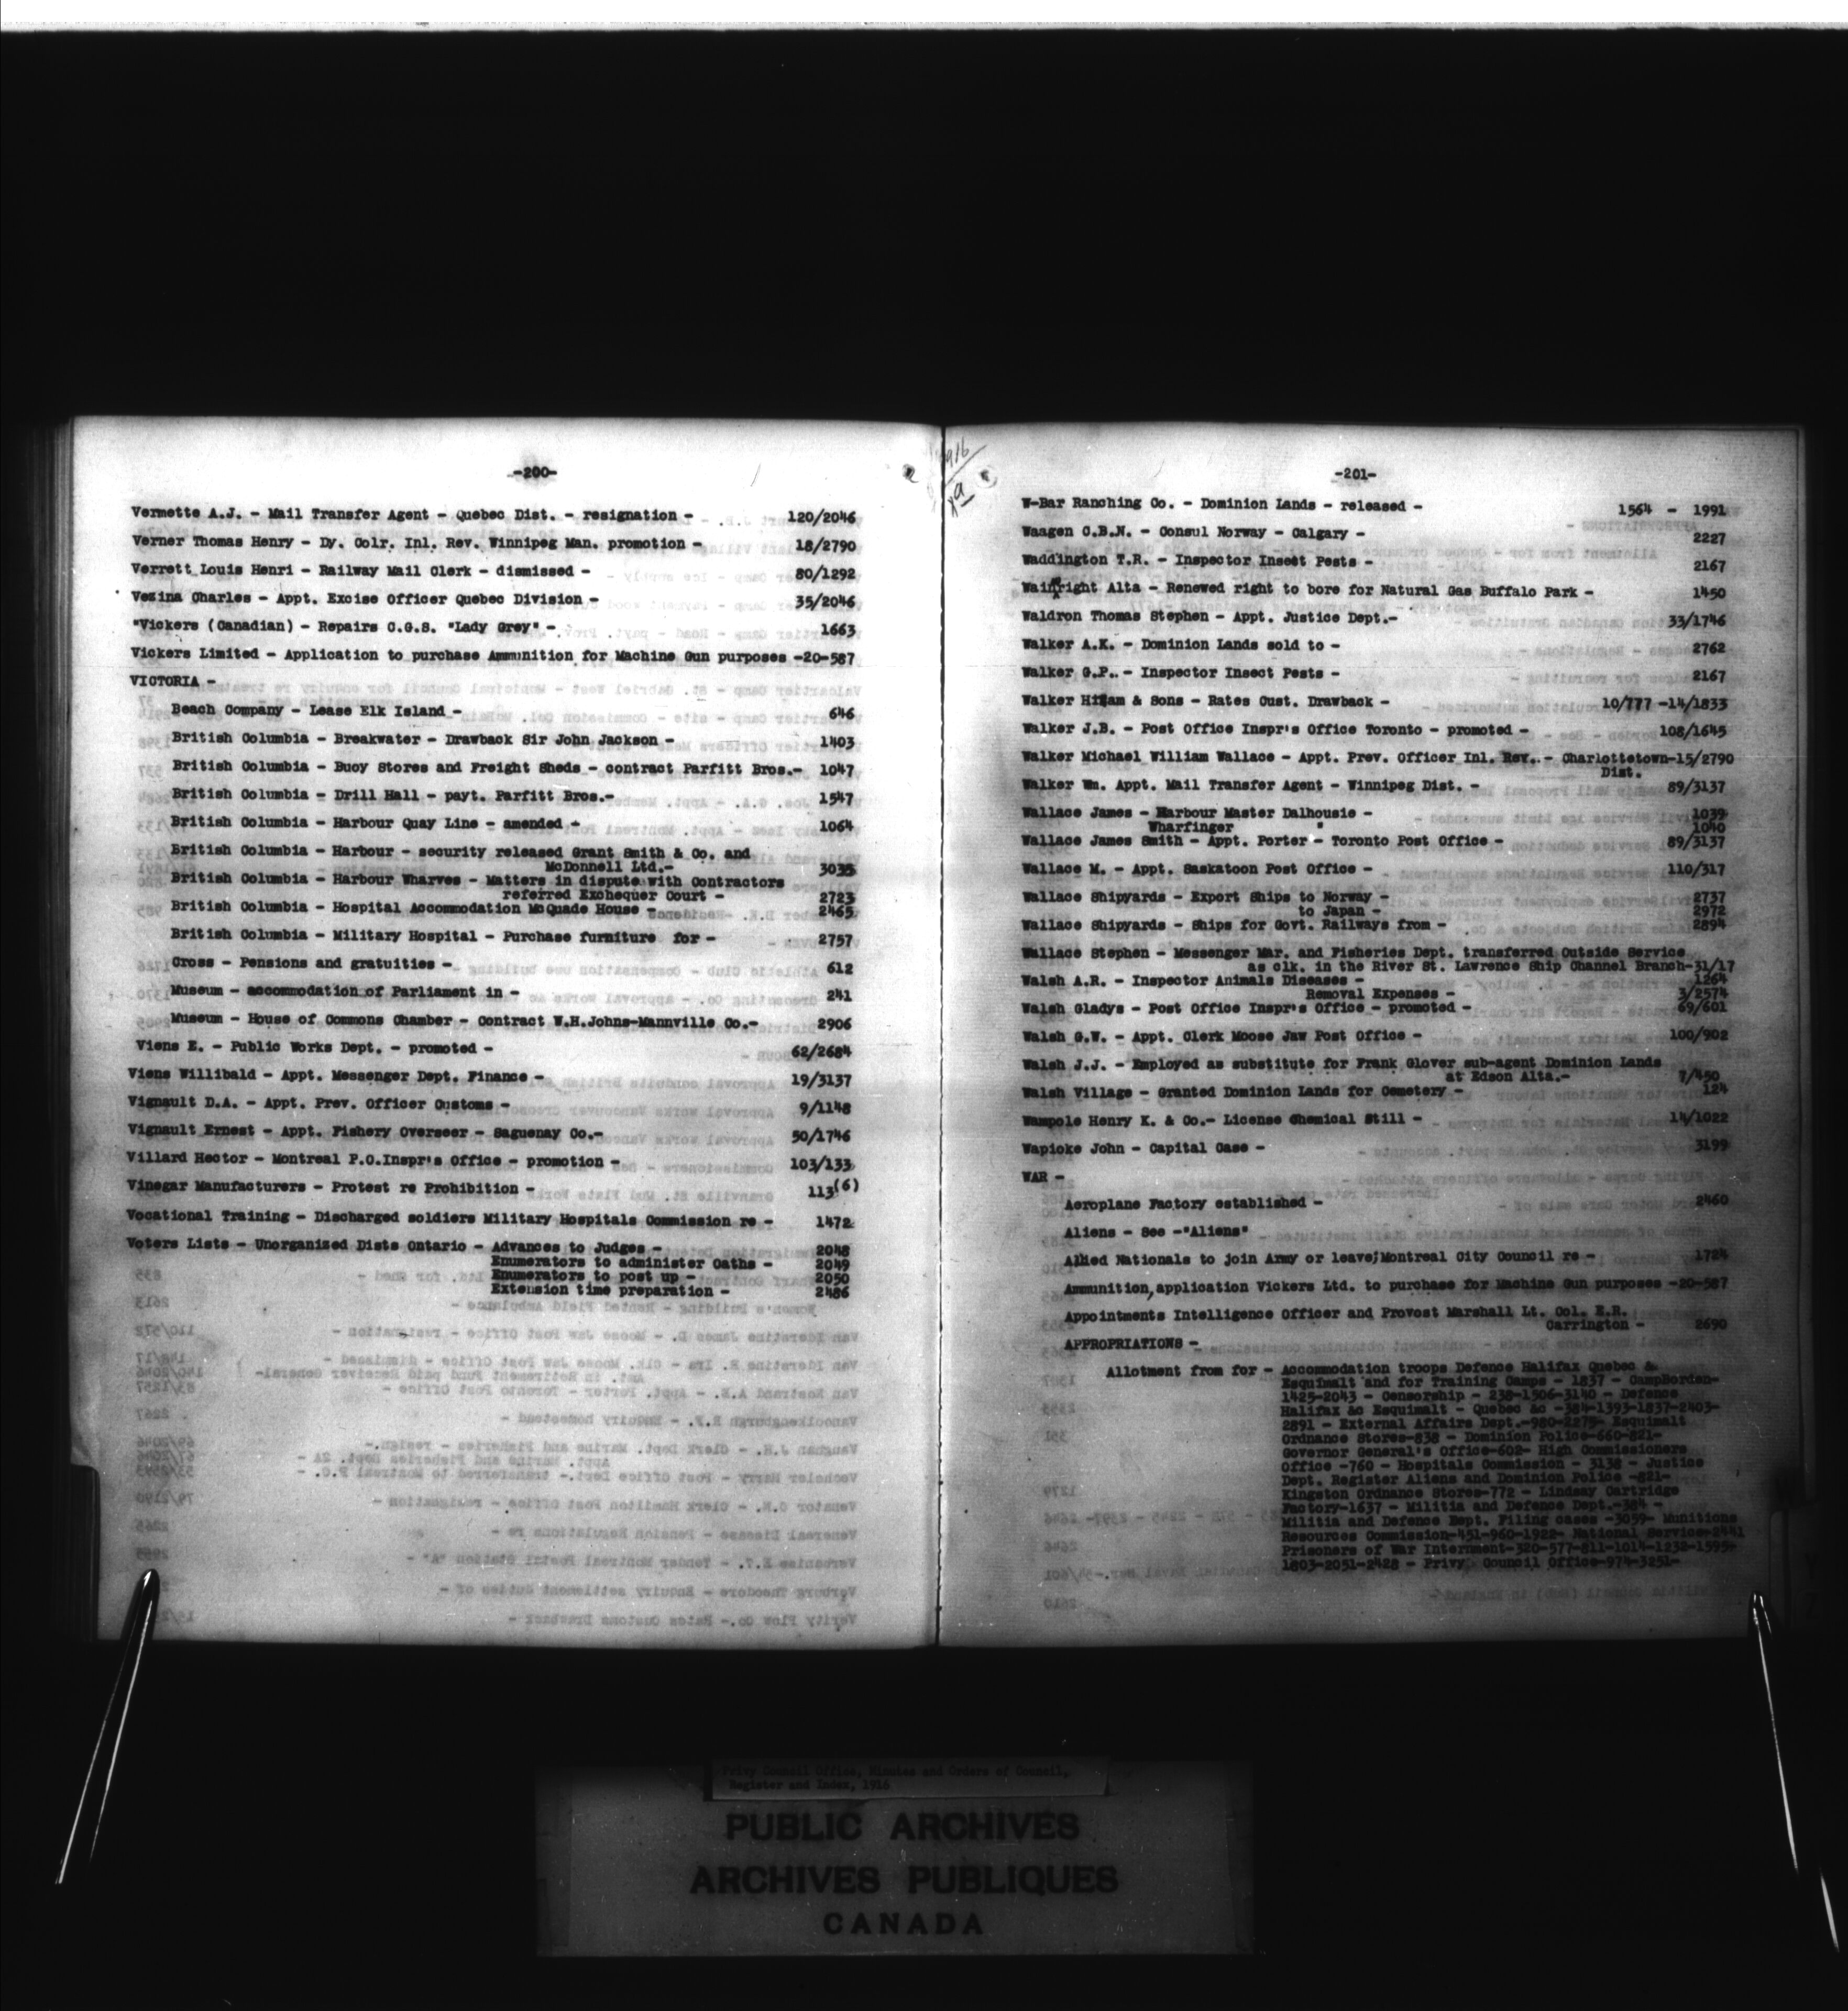 -200-
Vermette A.J. - Mail Transfer Agent - Quebec Dist. - resignation - 120/2046
Verner Thomas Henry - Dy. Colr. Inl. Rev. Winnipeg Man. promotion - 18/2790
Verrett Louis Henri - Railway Mail Clerk - dismissed - 80/1292
Vezina Charles - Appt. Excise Officer Quebec Division - 35/2046
"Vickers (Canadian) - Repairs C.G.S. "Lady Grey" - 1663
Vickers Limited - Application to purchase Ammunition for Machine Gun purposes -20-587
VICTORIA -
Beach Company - Lease Elk Island - 646
British Columbia - Breakwater - Drawback Sir John Jackson - 1403
British Columbia - Buoy Stores and Freight Sheds - contract Parfitt Bros.- 1047
British Columbia - Drill Hall - payt. Parfitt Bros.- 1547
British Columbia - Harbour Quay Line - amended - 1064
British Columbia - Harbour - security released Grant Smith & Co. and
McDonnell Ltd.- 3035
British Columbia - Harbour Wharves - Matters in dispute with Contractors
referred Exchequer Court - 2723
British Columbia - Hospital Accommodation McQuade House - 2465
British Columbia - Military Hospital - Purchase furniture for - 2757
Cross - Pensions and gratuities - 612
Museum - accommodation of Parliament in - 241
Museum - House of Commons Chamber - Contract W.H.Johns-Mannville Co.- 2906
Viens E. - Public Works Dept. - promoted - 62/2684
Viens Willibald - Appt. Messenger Dept. Finance - 19/3137
Vignault D.A. - Appt. Prev. Officer Customs - 9/1148
Vignault Ernest - Appt. Fishery Overseer - Saguenay Co.- 50/1746
Villard Hector - Montreal P.O.Inspr's Office - promotion - 103/133
Vinegar Manufacturers - Protest re Prohibition - 113(6)
Vocational Training - Discharged soldiers Military Hospitals Commission re - 1472
Voters Lists - Unorganized Dists Ontario - Advances to Judges - 2048
Enumerators to administer Oaths - 2049
Enumerators to post up - 2050
Extension time preparation - 2486
-201-
W-Bar Ranching Co. - Dominion Lands - released - 1564 - 1991
Waagen C.B.N. - Consul Norway - Calgary - 2227
Waddington T.R. - Inspector Insect Pests - 2167
Wainright Alta - Renewed right to bore for Natural Gas Buffalo Park - 1450
Waldron Thomas Stephen - Appt. Justice Dept.- 33/1746
Walker A.K. - Dominion Lands sold to - 2762
Walker G.P. - Inspector Insect Pests - 2167
Walker Hiram & Sons - Rates Cust. Drawback - 10/777 -14/1833
Walker J.B. - Post Office Inspr's Office Toronto - promoted - 108/1645
Walker Michael William Wallace - Appt. Prev. Officer Inl. Rev. - Charlottetown-15/2790
Dist.
Walker Wm. Appt. Mail Transfer Agent - Winnipeg Dist. - 89/3137
Wallace James - Harbour Master Dalhousie - 1039
Wharfinger " 1040
Wallace James Smith - Appt. Porter - Toronto Post Office - 89/3137
Wallace M. - Appt. Saskatoon Post Office - 110/317
Wallace Shipyards - Export Ships to Norway - 2737
to Japan - 2972
Wallace Shipyards - Ships for Govt. Railways from - 2894
Wallace Stephen - Messenger Mar. and Fisheries Dept. transferred Outside Service
as clk. in the River St. Lawrence Ship Channel Branch-31/17
Walsh A.R. - Inspector Animals Diseases - 1264
Removal Expenses - 3/2574
Walsh Gladys - Post Office Inspr's Office - promoted - 69/601
Walsh G.W. - Appt. Clerk Moose Jaw Post Office - 100/902
Walsh J.J. - Employed as substitute for Frank Glover sub-agent Dominion Lands
at Edson Alta.- 7/450
Walsh Village - Granted Dominion Lands for Cemetery - 124
Wampole Henry K. & Co.- License Chemical Still - 14/1022
Wapioke John - Capital Case - 3199
WAR -
Aeroplane Factory established - 2460
Aliens - See -"Aliens"
Allied Nationals to join Army or leave;Montreal City Council re - 1724
Ammunition,application Vickers Ltd. to purchase for Machine Gun purposes -20-587
Appointments Intelligence Officer and Provost Marshall Lt. Col. E.R.
Carrington - 2690
APPROPRIATIONS -
Allotment from for - Accommodation troops Defence Halifax Quebec &
Esquimalt and for Training Camps - 1837 - CampBorden-
1425-2043 - Censorship - 238-1506-3140 - Defence
Halifax &c Esquimalt - Quebec &c -384-1393-1837-2403-
2891 - External Affairs Dept.-980-2275- Esquimalt
Ordnance Stores-838 - Dominion Police-660-821-
Governor General's Office-602- High Commissioners
Office -760 - Hospitals Commission - 3138 - Justice
Dept. Register Aliens and Dominion Police -821-
Kingston Ordnance Stores-772 - Lindsay Cartridge
Factory-1637 - Militia and Defence Dept.-384 -
Militia and Defence Dept. Filing cases -3059- Munitions
Resources Commission-451-960-1922- National Service-2441
Prisoners of War Internment-320-577-811-1014-1232-1595-
1803-2051-2428 - Privy Council Office-974-3251-
Privy Council Office, Minutes and Orders of Council,
Register and Index, 1916
PUBLIC ARCHIVES
ARCHIVES PUBLIQUES
CANADA